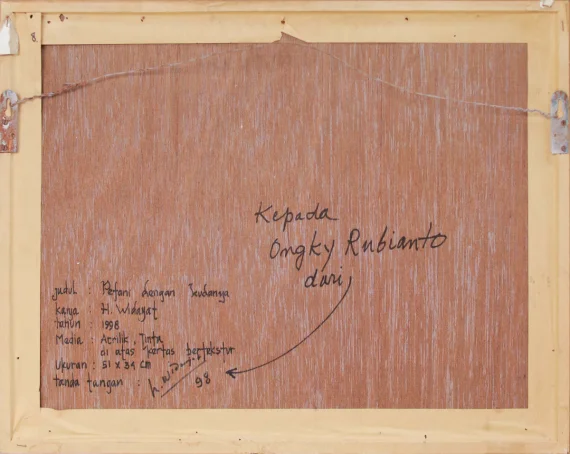 8
Kepada
Ongky Rubianto
dari,
judul : Petani dengan Kudanya
karya : H. Widayat
tahun : 1998
Media : Acrilik, Tinta
di atas kertas bertekstur
Ukuran : 51 x 34 cm
tanda tangan : H. Widayat
98